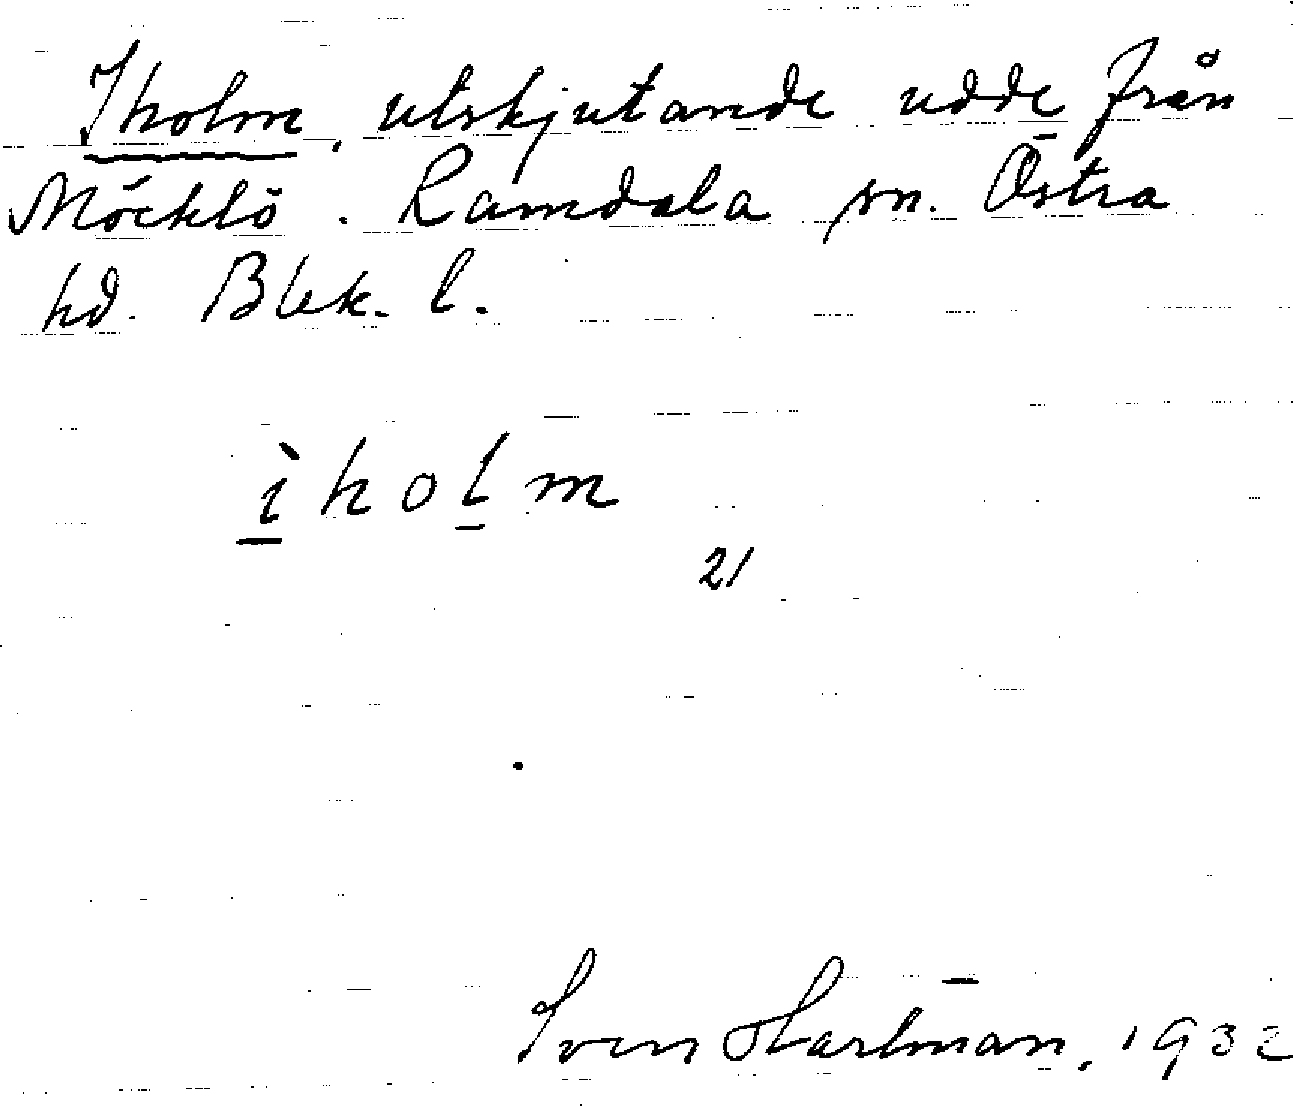 Iholm, utskjutande udde från
Möcklö. Ramdala sn. Östra
hd. Blek. l.
ìholm
21
Sven Hartman, 1932